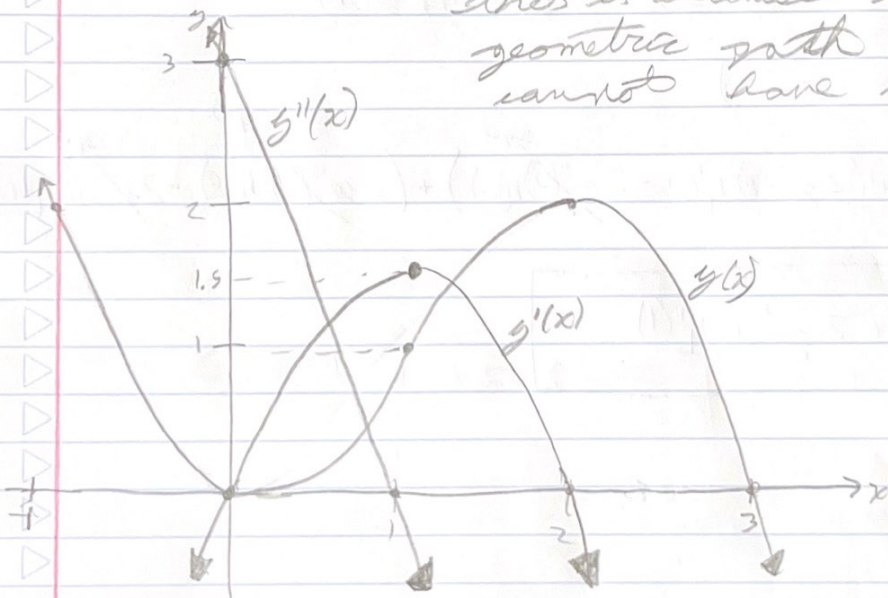 geometric path
cannot have
y
3
y''(x)
2
1.5
y(x)
y'(x)
1
x
-1
1
2
3